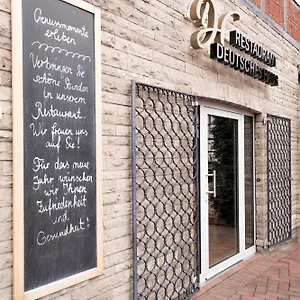 Genussmomente
erleben
Verbringen Sie
schöne Stunden
in unserem
Restaurant.
Wir freuen uns
auf Sie!
Für das neue
Jahr wünschen
wir Ihnen
Zufriedenheit
und
Gesundheit!
DH
RESTAURANT
DEUTSCHES HAUS